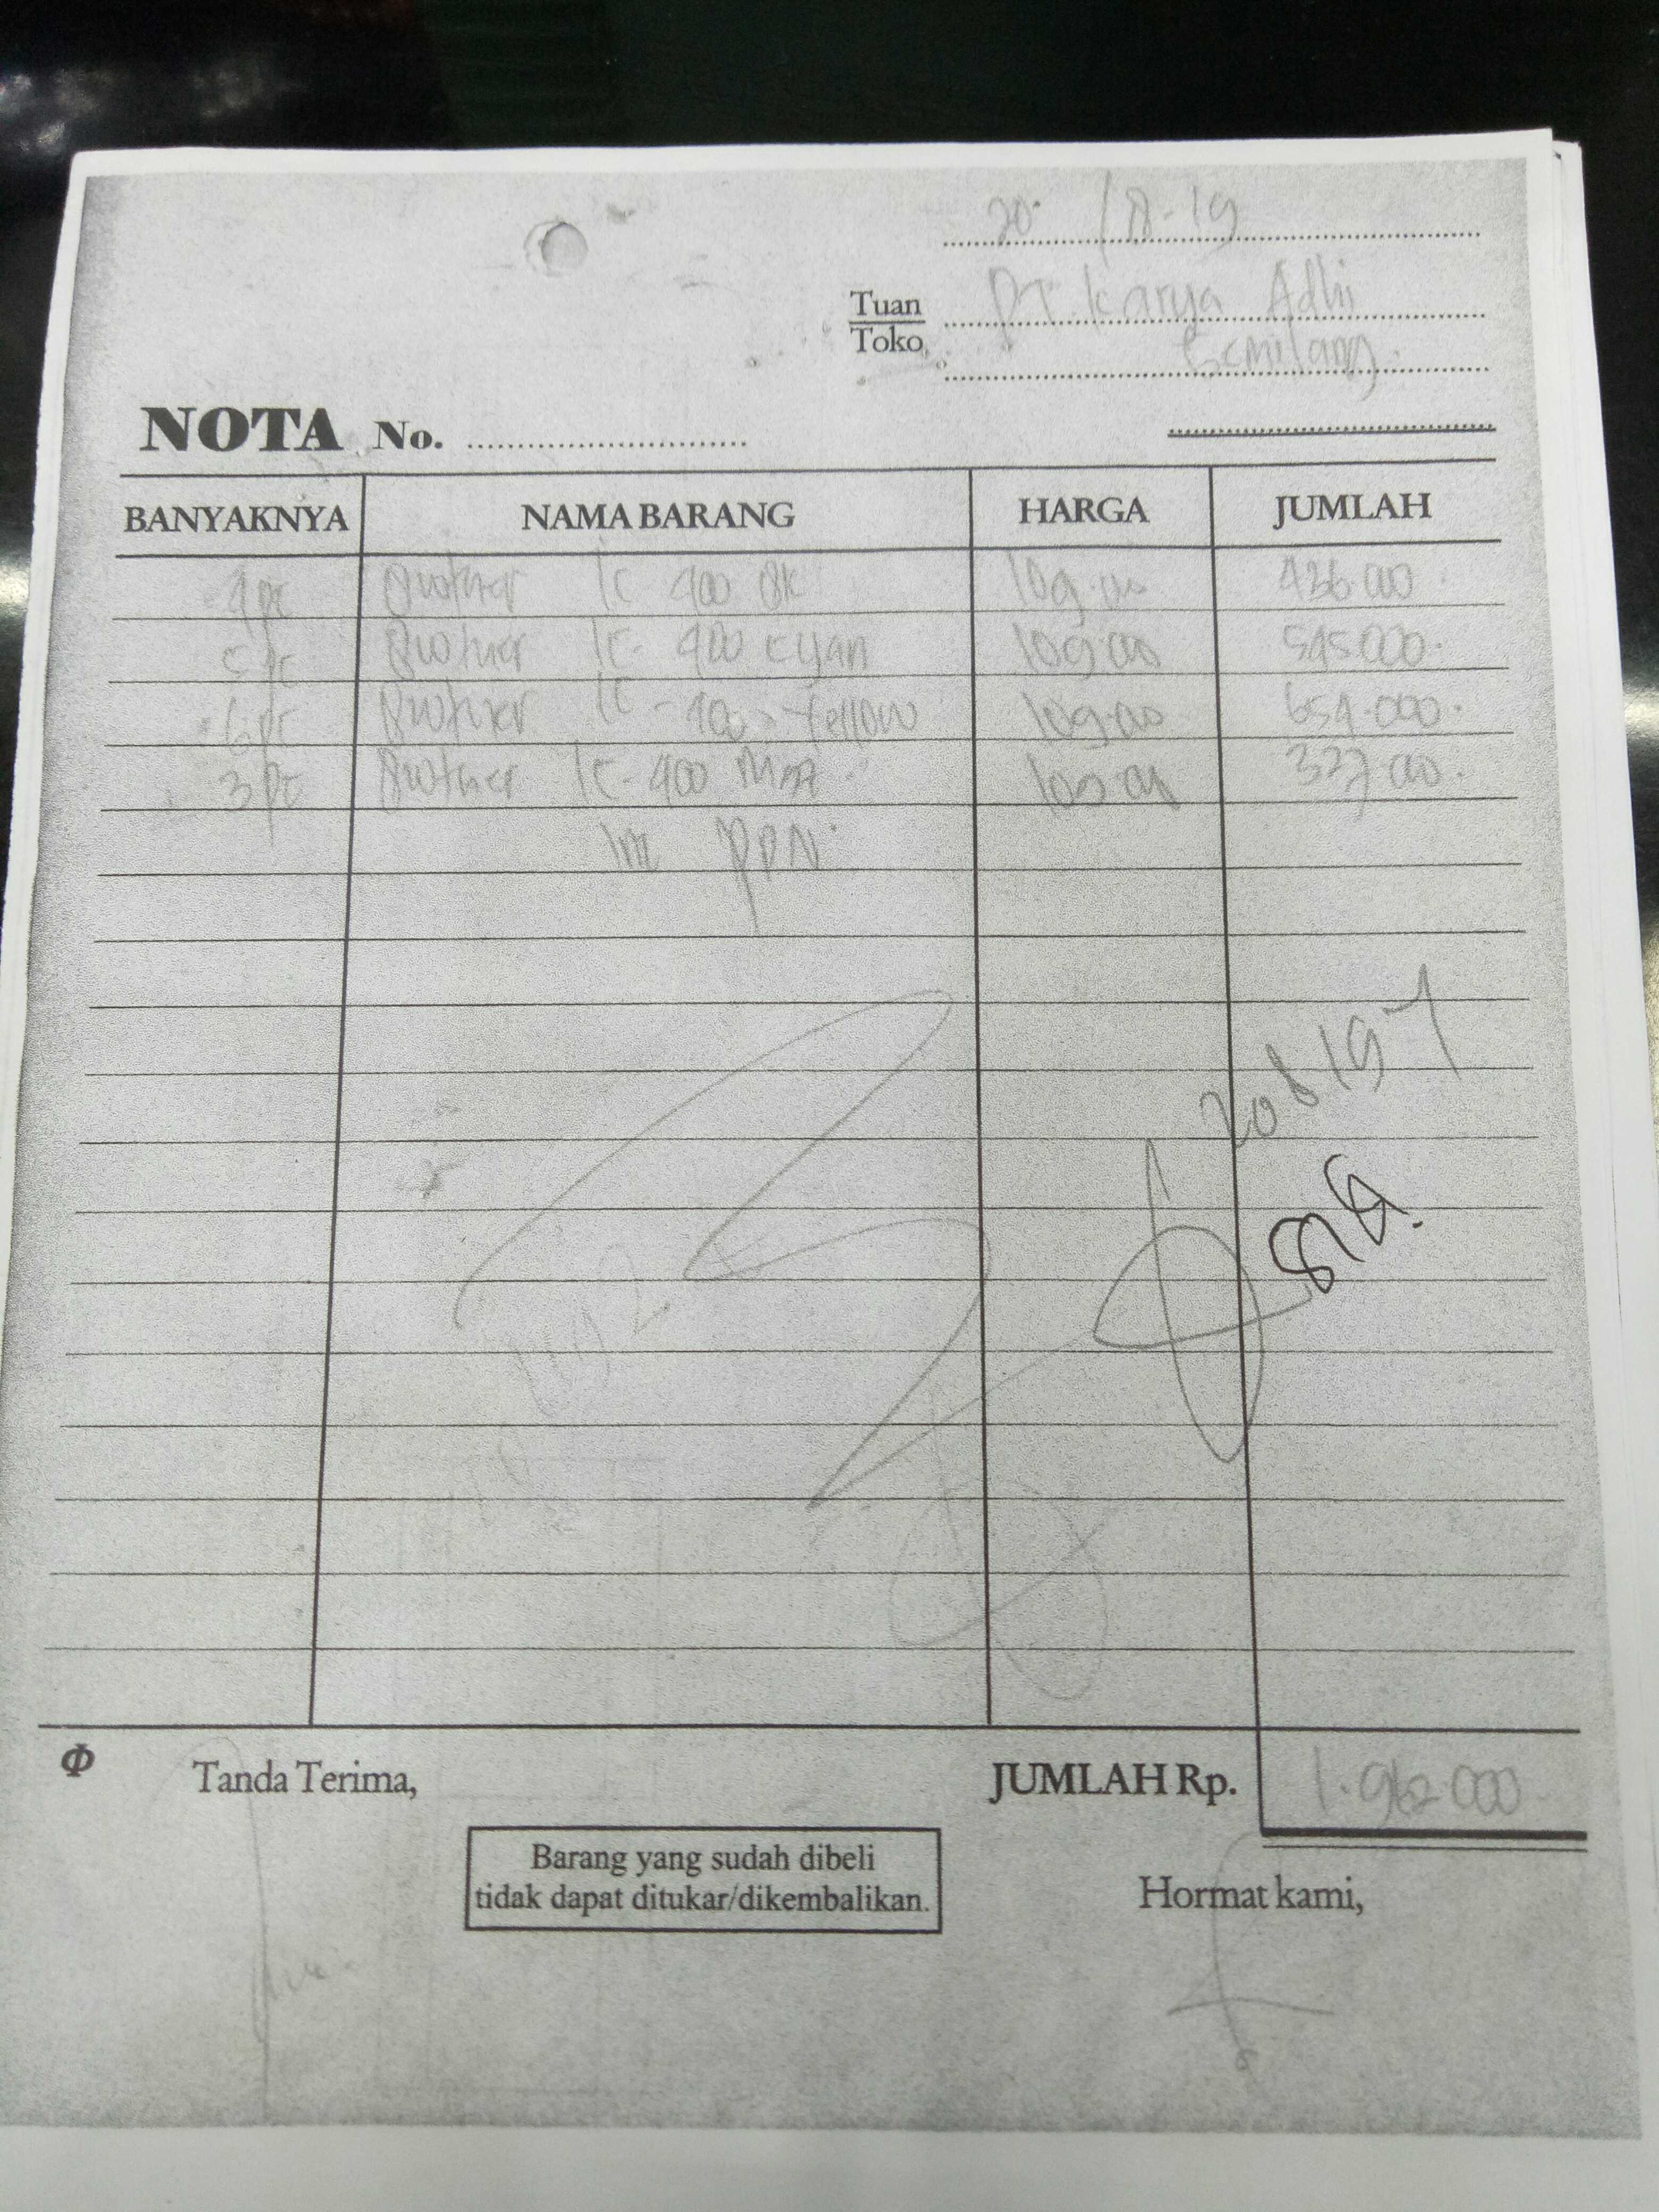 20 / 8 - 19
Tuan
Toko
PT. Karya Adhi
Gemilang
NOTA No.
BANYAKNYA NAMA BARANG HARGA JUMLAH
4 pc Brother lc - 400 BK 109.000 436.000
5 pc Brother lc - 400 cyan 109.000 545.000
6 pc Brother lc - 400 Yellow 109.000 654.000
3 pc Brother lc - 400 109.000 327.000
Inc PPN
Φ Tanda Terima, JUMLAH Rp. 1.962.000
Barang yang sudah dibeli
tidak dapat ditukar/dikembalikan.
Hormat kami,